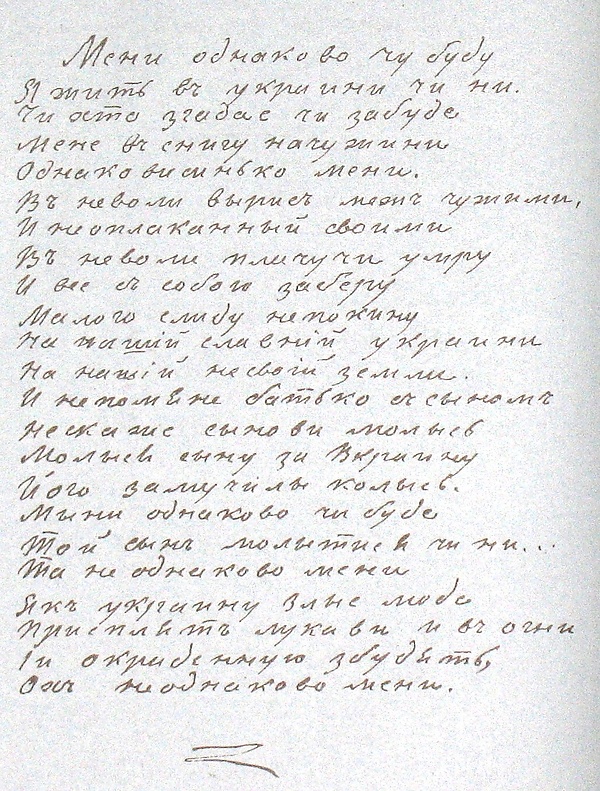 Мени однаково чу буду
Я жить въ украини чи ни.
Чи хто згадае чи забуде
Мене въ снигу на чужини
Однаковисинько мени.
Въ неволи вырисъ межъ чужими,
И неоплаканный своими
Въ неволи плачучи умру
И все съ собою заберу
Малого слиду непокину
На нашій славній украини
На нашій несвоій земли.
И непомяне батько съ сыномъ
нескаже сынови молысь
Молысь сыну за Вкраину
Його замучилы колысь.
Мыни однаково чи буде
Той сынъ молытися чи ни...
Та не однаково мени
Якъ украину злые люде
Присплятъ лукави и въ огни
Іи окраденную збудятъ,
Охъ неоднаково мени.